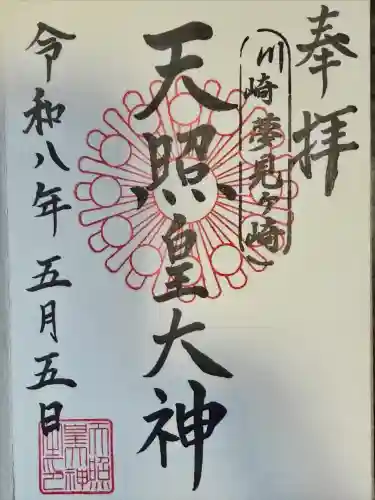 奉拝
(川崎夢見ヶ崎)
天照皇大神
令和八年五月五日
天照
皇大神